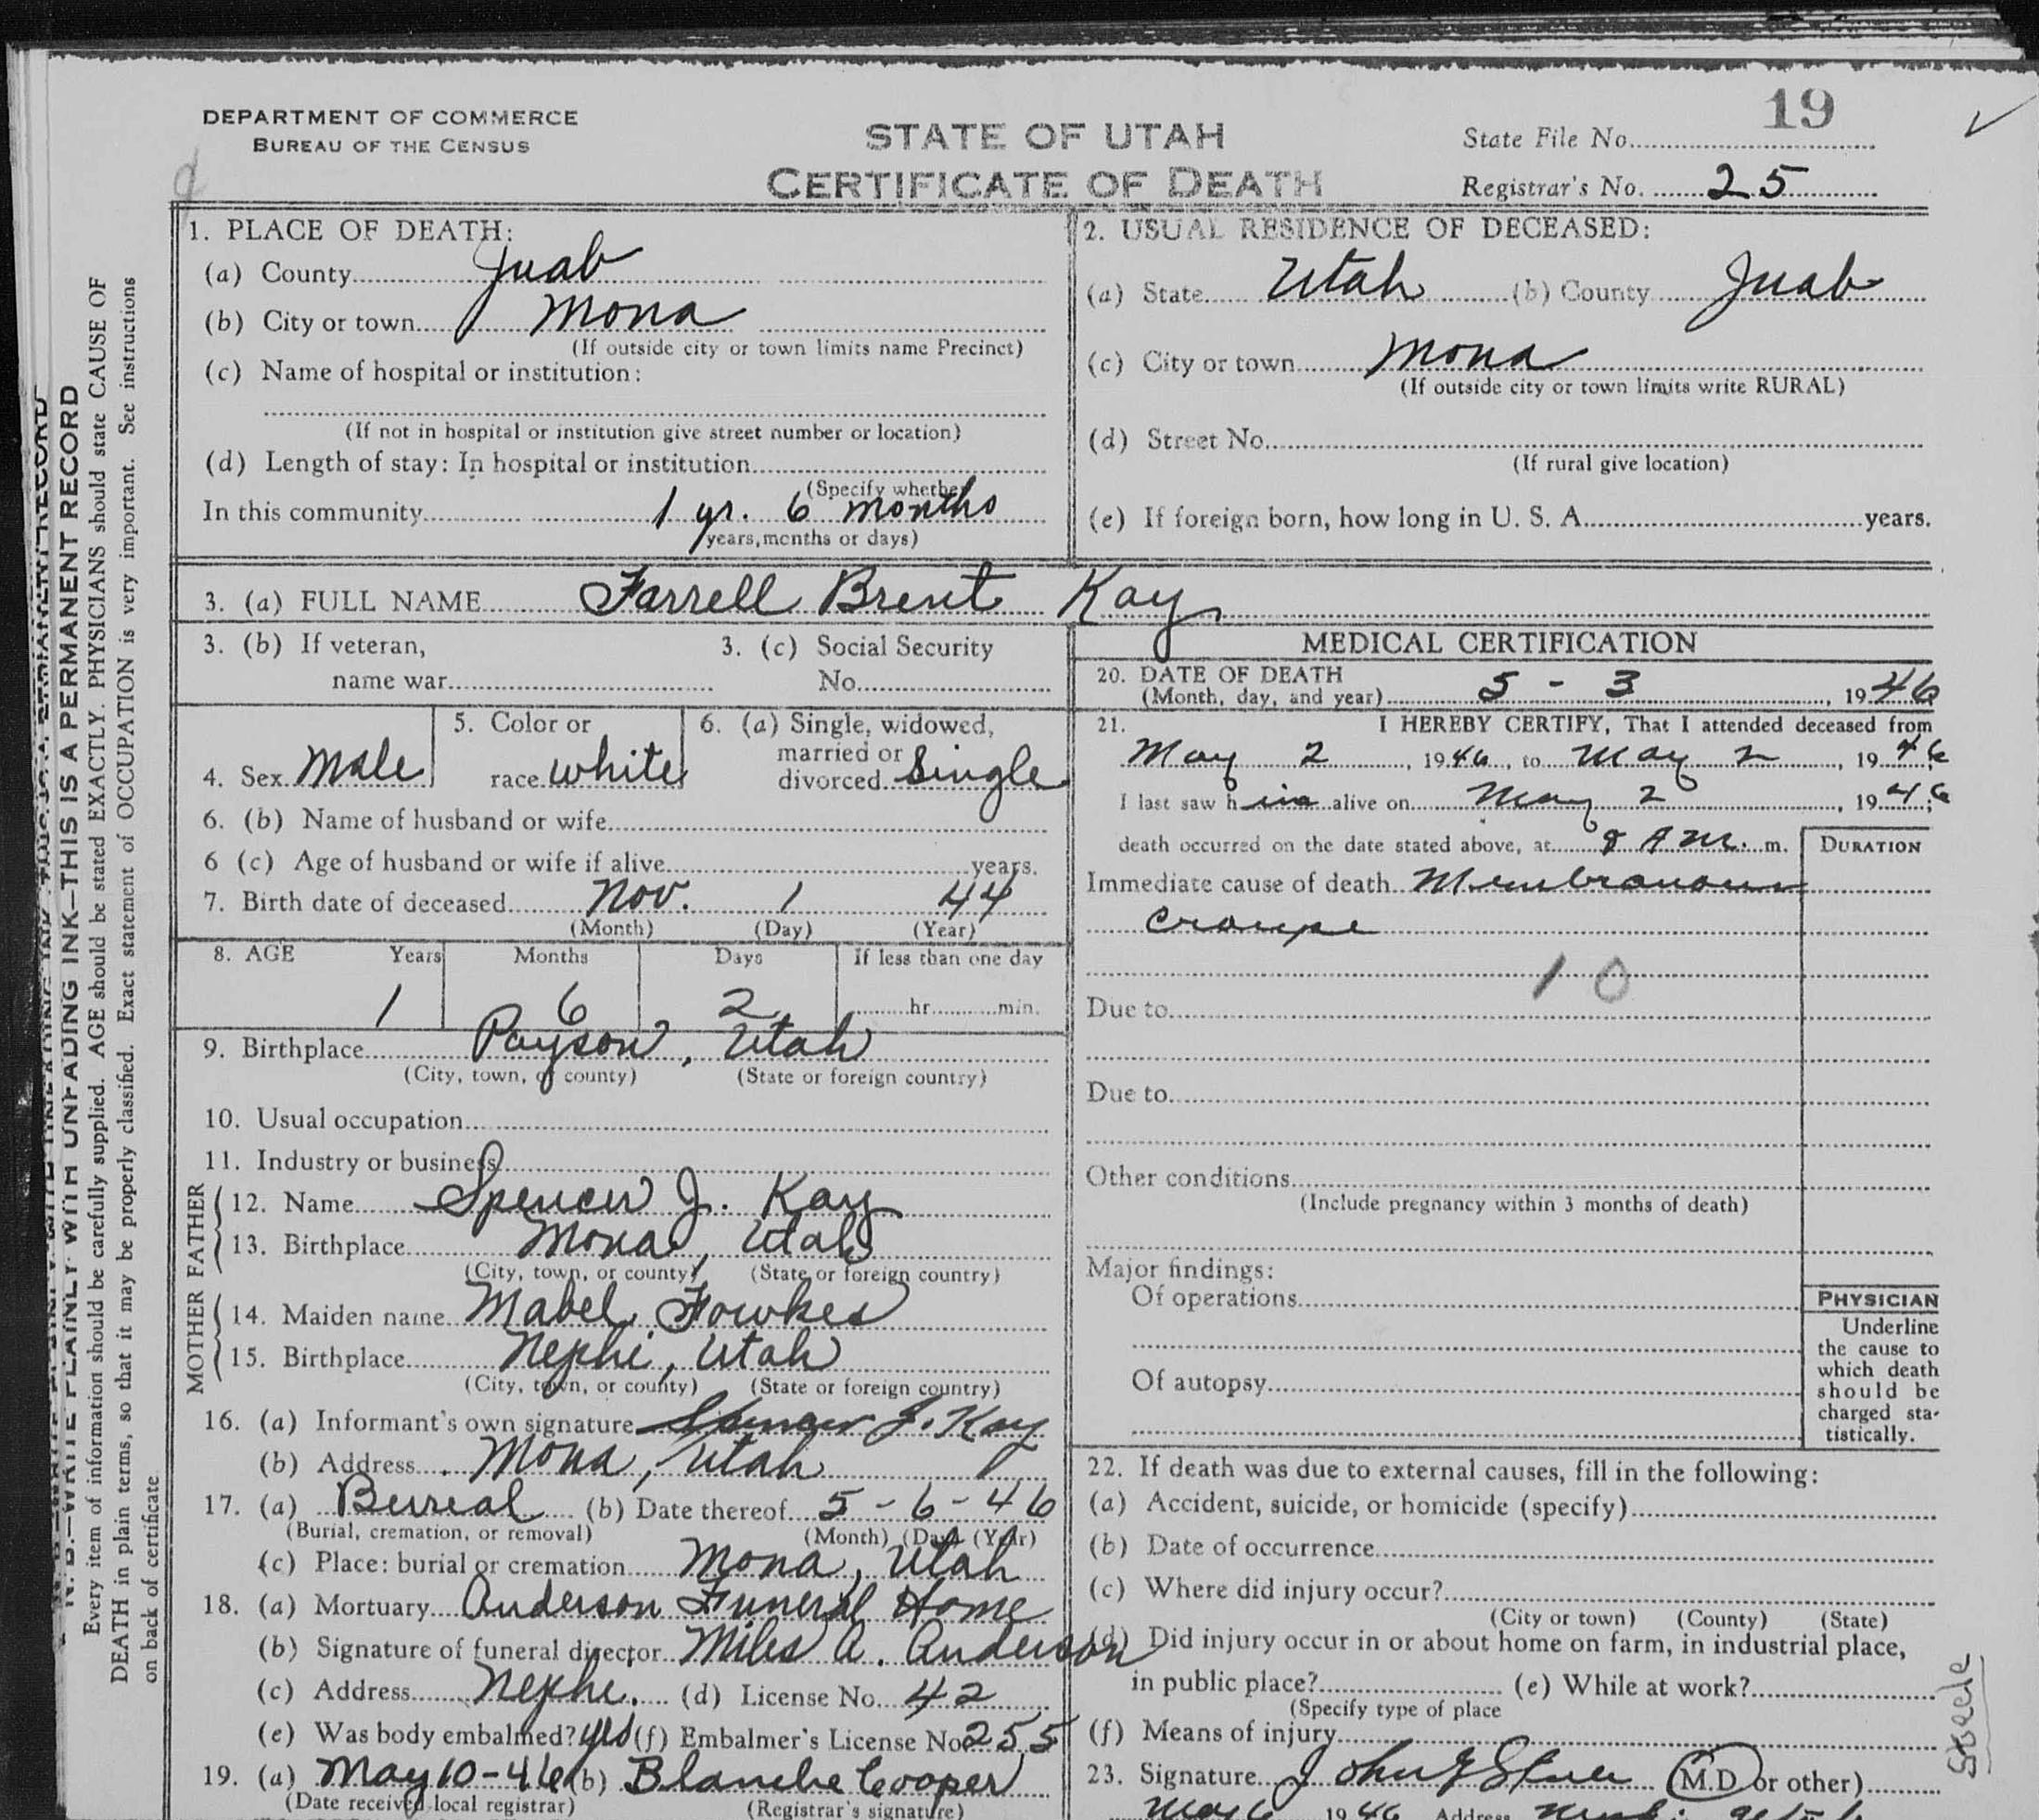 19
DEPARTMENT OF COMMERCE
BUREAU OF THE CENSUS
STATE OF UTAH
CERTIFICATE OF DEATH
State File No.
Registrar's No. 25
N. B.—WRITE PLAINLY WITH UNFADING INK—THIS IS A PERMANENT RECORD
Every item of information should be carefully supplied. AGE should be stated EXACTLY. PHYSICIANS should state CAUSE OF
DEATH in plain terms, so that it may be properly classified. Exact statement of OCCUPATION is very important. See instructions
on back of certificate
1. PLACE OF DEATH:
(a) County Juab
(b) City or town Mona
(If outside city or town limits name Precinct)
(c) Name of hospital or institution:
(If not in hospital or institution give street number or location)
(d) Length of stay: In hospital or institution
(Specify whether
In this community 1 yr. 6 months
years, months or days)
2. USUAL RESIDENCE OF DECEASED:
(a) State Utah (b) County Juab
(c) City or town Mona
(If outside city or town limits write RURAL)
(d) Street No.
(If rural give location)
(e) If foreign born, how long in U. S. A. years.
3. (a) FULL NAME Farrell Brent Kay
3. (b) If veteran,
name war
3. (c) Social Security
No.
4. Sex Male
5. Color or
race White
6. (a) Single, widowed,
married or
divorced Single
6. (b) Name of husband or wife
6 (c) Age of husband or wife if alive years.
7. Birth date of deceased Nov. 1 44
(Month) (Day) (Year)
8. AGE Years Months Days If less than one day
1 6 2 hr. min.
9. Birthplace Payson, Utah
(City, town, or county) (State or foreign country)
10. Usual occupation
11. Industry or business
FATHER
12. Name Spencer J. Kay
13. Birthplace Mona, Utah
(City, town, or county) (State or foreign country)
MOTHER
14. Maiden name Mabel Fowkes
15. Birthplace Nephi, Utah
(City, town, or county) (State or foreign country)
16. (a) Informant's own signature Spencer J. Kay
(b) Address Mona, Utah
17. (a) Burreal (b) Date thereof 5-6-46
(Burial, cremation, or removal) (Month) (Day) (Year)
(c) Place: burial or cremation Mona, Utah
18. (a) Mortuary Anderson Funeral Home
(b) Signature of funeral director Miles A. Anderson
(c) Address Nephi. (d) License No. 42
(e) Was body embalmed? yes (f) Embalmer's License No. 255
19. (a) May 10-46 (b) Blanche Cooper
(Date received local registrar) (Registrar's signature)
MEDICAL CERTIFICATION
20. DATE OF DEATH
(Month, day, and year) 5 - 3, 1946
21. I HEREBY CERTIFY, That I attended deceased from
May 2, 1946, to May 2, 1946
I last saw h im alive on May 2, 1946;
death occurred on the date stated above, at 8 A M. m.
DURATION
Immediate cause of death Membranous
croupe
10
Due to
Due to
Other conditions
(Include pregnancy within 3 months of death)
Major findings:
Of operations
Of autopsy
PHYSICIAN
Underline
the cause to
which death
should be
charged sta-
tistically.
22. If death was due to external causes, fill in the following:
(a) Accident, suicide, or homicide (specify)
(b) Date of occurrence
(c) Where did injury occur?
(City or town) (County) (State)
(d) Did injury occur in or about home on farm, in industrial place,
in public place? (e) While at work?
(Specify type of place
(f) Means of injury
23. Signature John Steele (M.D or other)
Steele
May 6 1946 Address